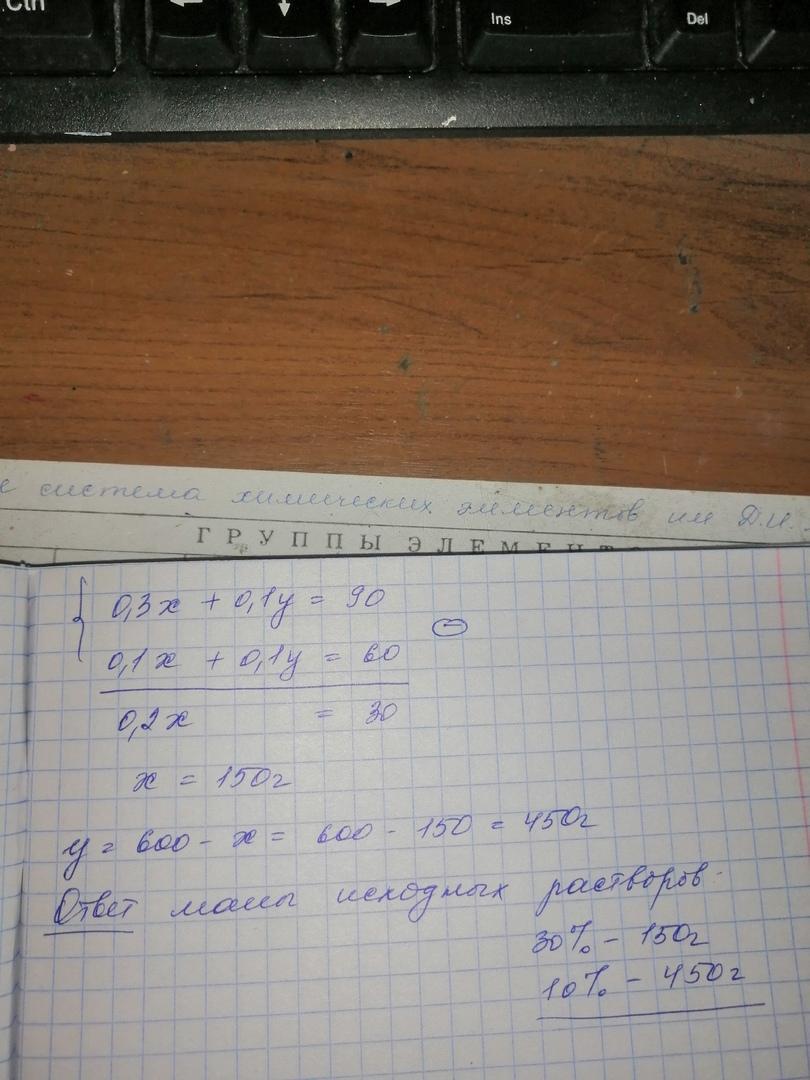 Ctrl
←
↓
→
Ins
Del
система химических элементов им Д.И.
ГРУППЫ ЭЛЕМЕНТО
0,3x + 0,1y = 90
0,1x + 0,1y = 60
0,2x = 30
x = 150г
y = 600 - x = 600 - 150 = 450г
Ответ массы исходных растворов.
30% - 150г
10% - 450г